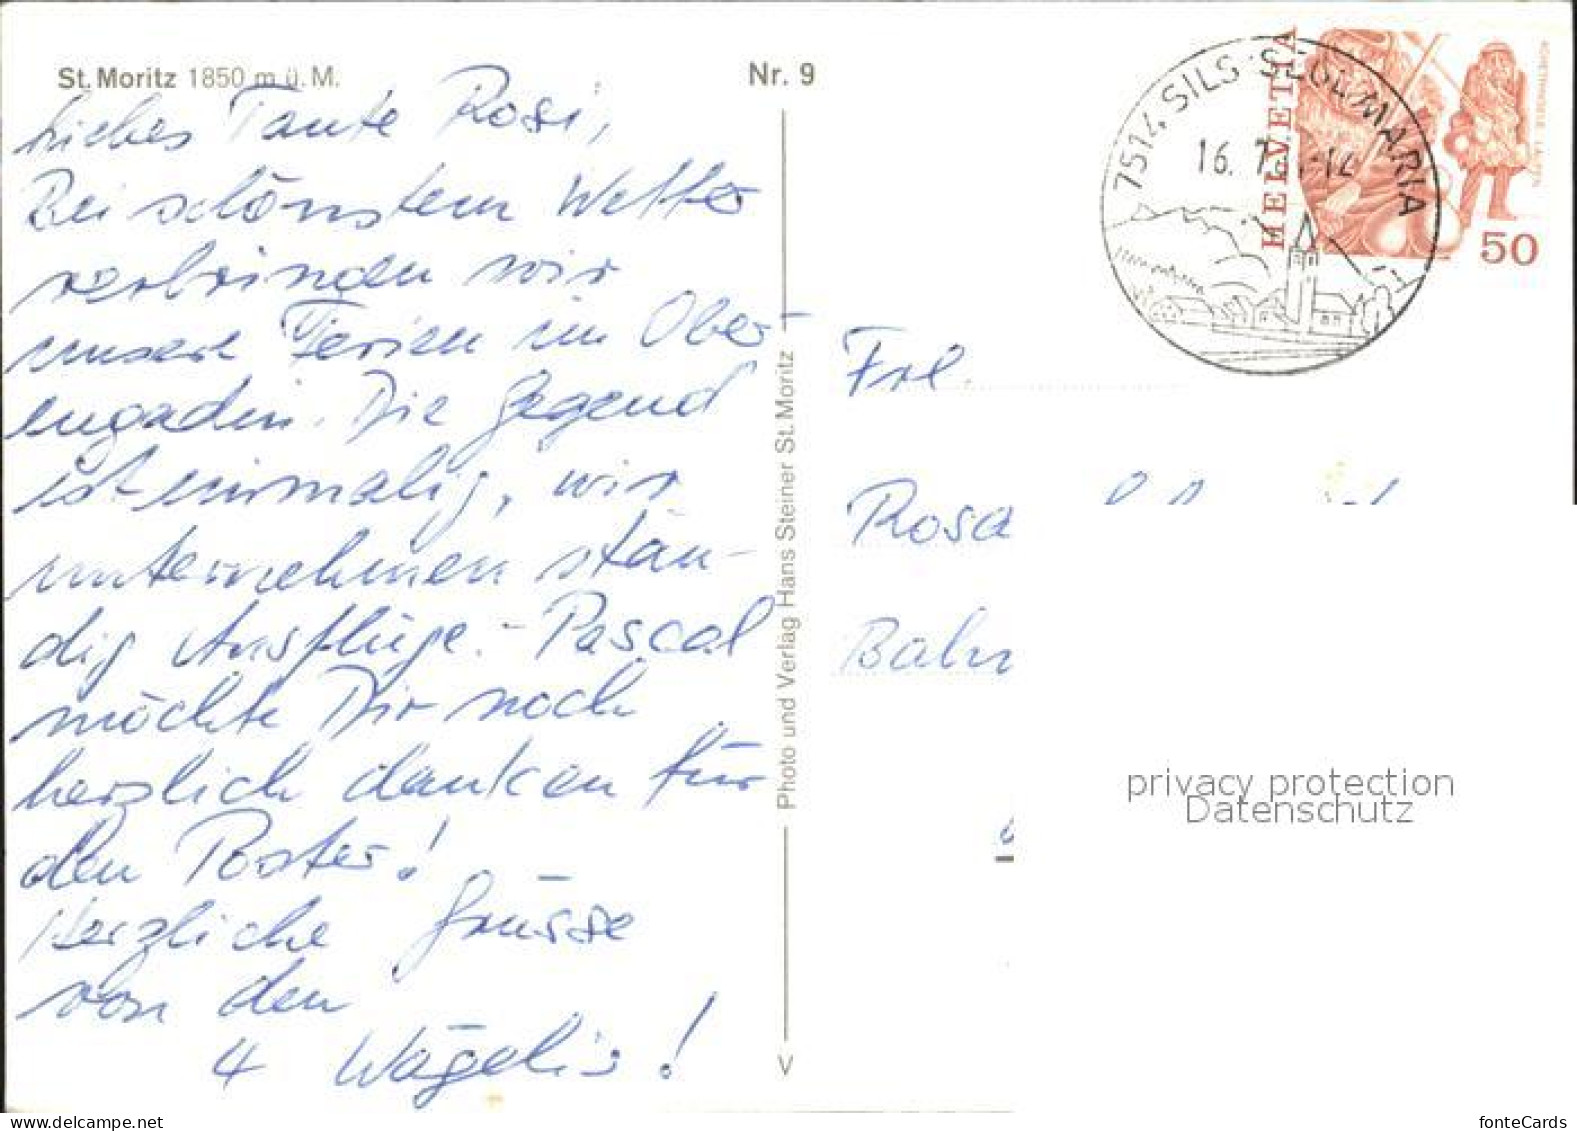 St. Moritz 1850 m ü. M.
Nr. 9
Liebes Tante Rosi,
Bei schönstem Wetter
verbringen wir
unsere Ferien im Ober-
engadin. Die Gegend
ist einmalig, wir
unternehmen stän-
dig Ausflüge. - Pascal
möchte Dir noch
herzlich danken für
den Poster!
Herzliche Grüsse
von den
4 Wägelis!
Photo und Verlag Hans Steiner St. Moritz
7514 SILS SEGL MARIA
16. 7.
HELVETIA
50
Frl.
Rosa
Bahn
privacy protection
Datenschutz
fonteCards